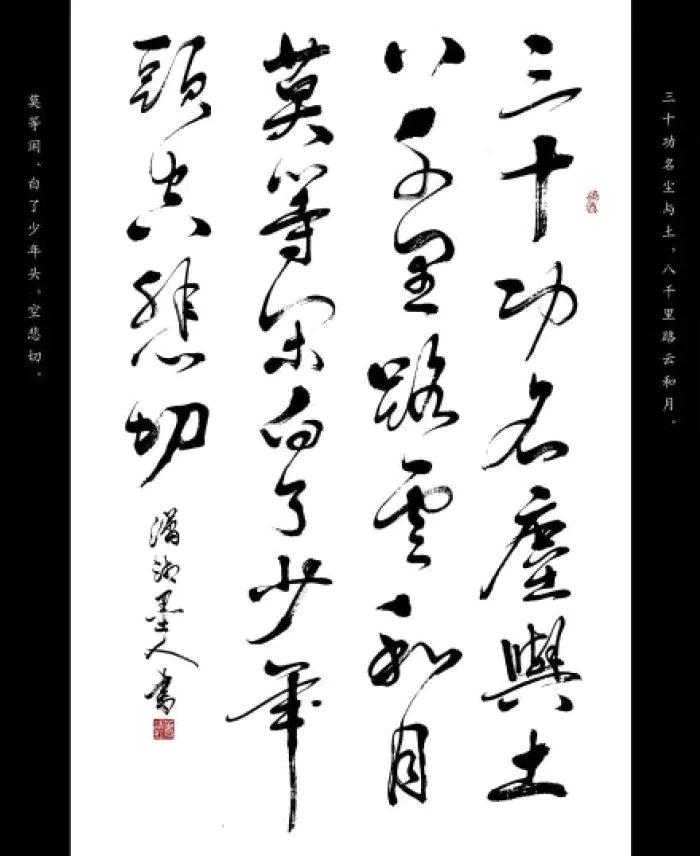 三十功名塵與土
八千里路雲和月
莫等閑白了少年
頭空悲切
瀟湘墨人書
三十功名尘与土，八千里路云和月。
莫等闲、白了少年头，空悲切。